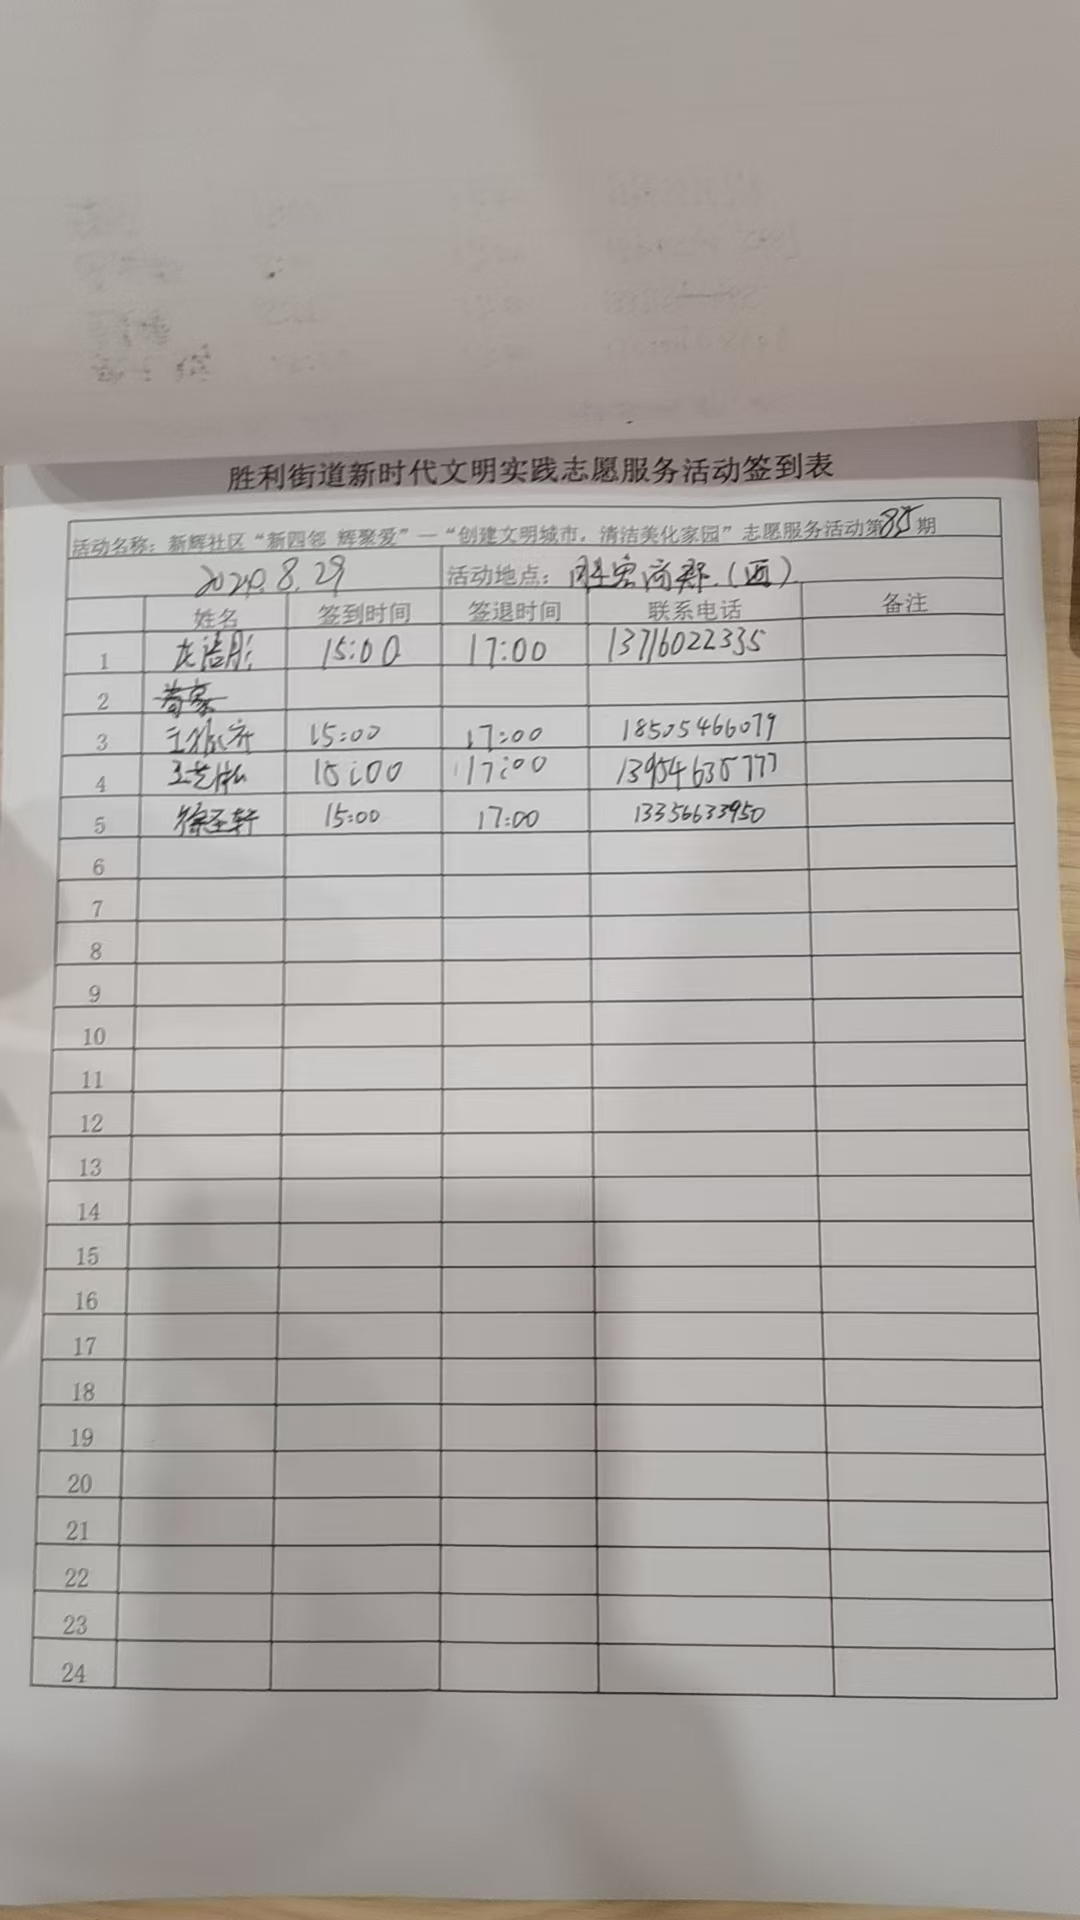 胜利街道新时代文明实践志愿服务活动签到表
活动名称：新辉社区“新四邻 辉聚爱”—“创建文明城市，清洁美化家园”志愿服务活动第85期
2020.8.29 活动地点： （西）
姓名 签到时间 签退时间 联系电话 备注
1 15:00 17:00 13716022335
2
3 15:00 17:00 18505466079
4 15:00 17:00 13954635777
5 徐圣轩 15:00 17:00 13356633950
6
7
8
9
10
11
12
13
14
15
16
17
18
19
20
21
22
23
24